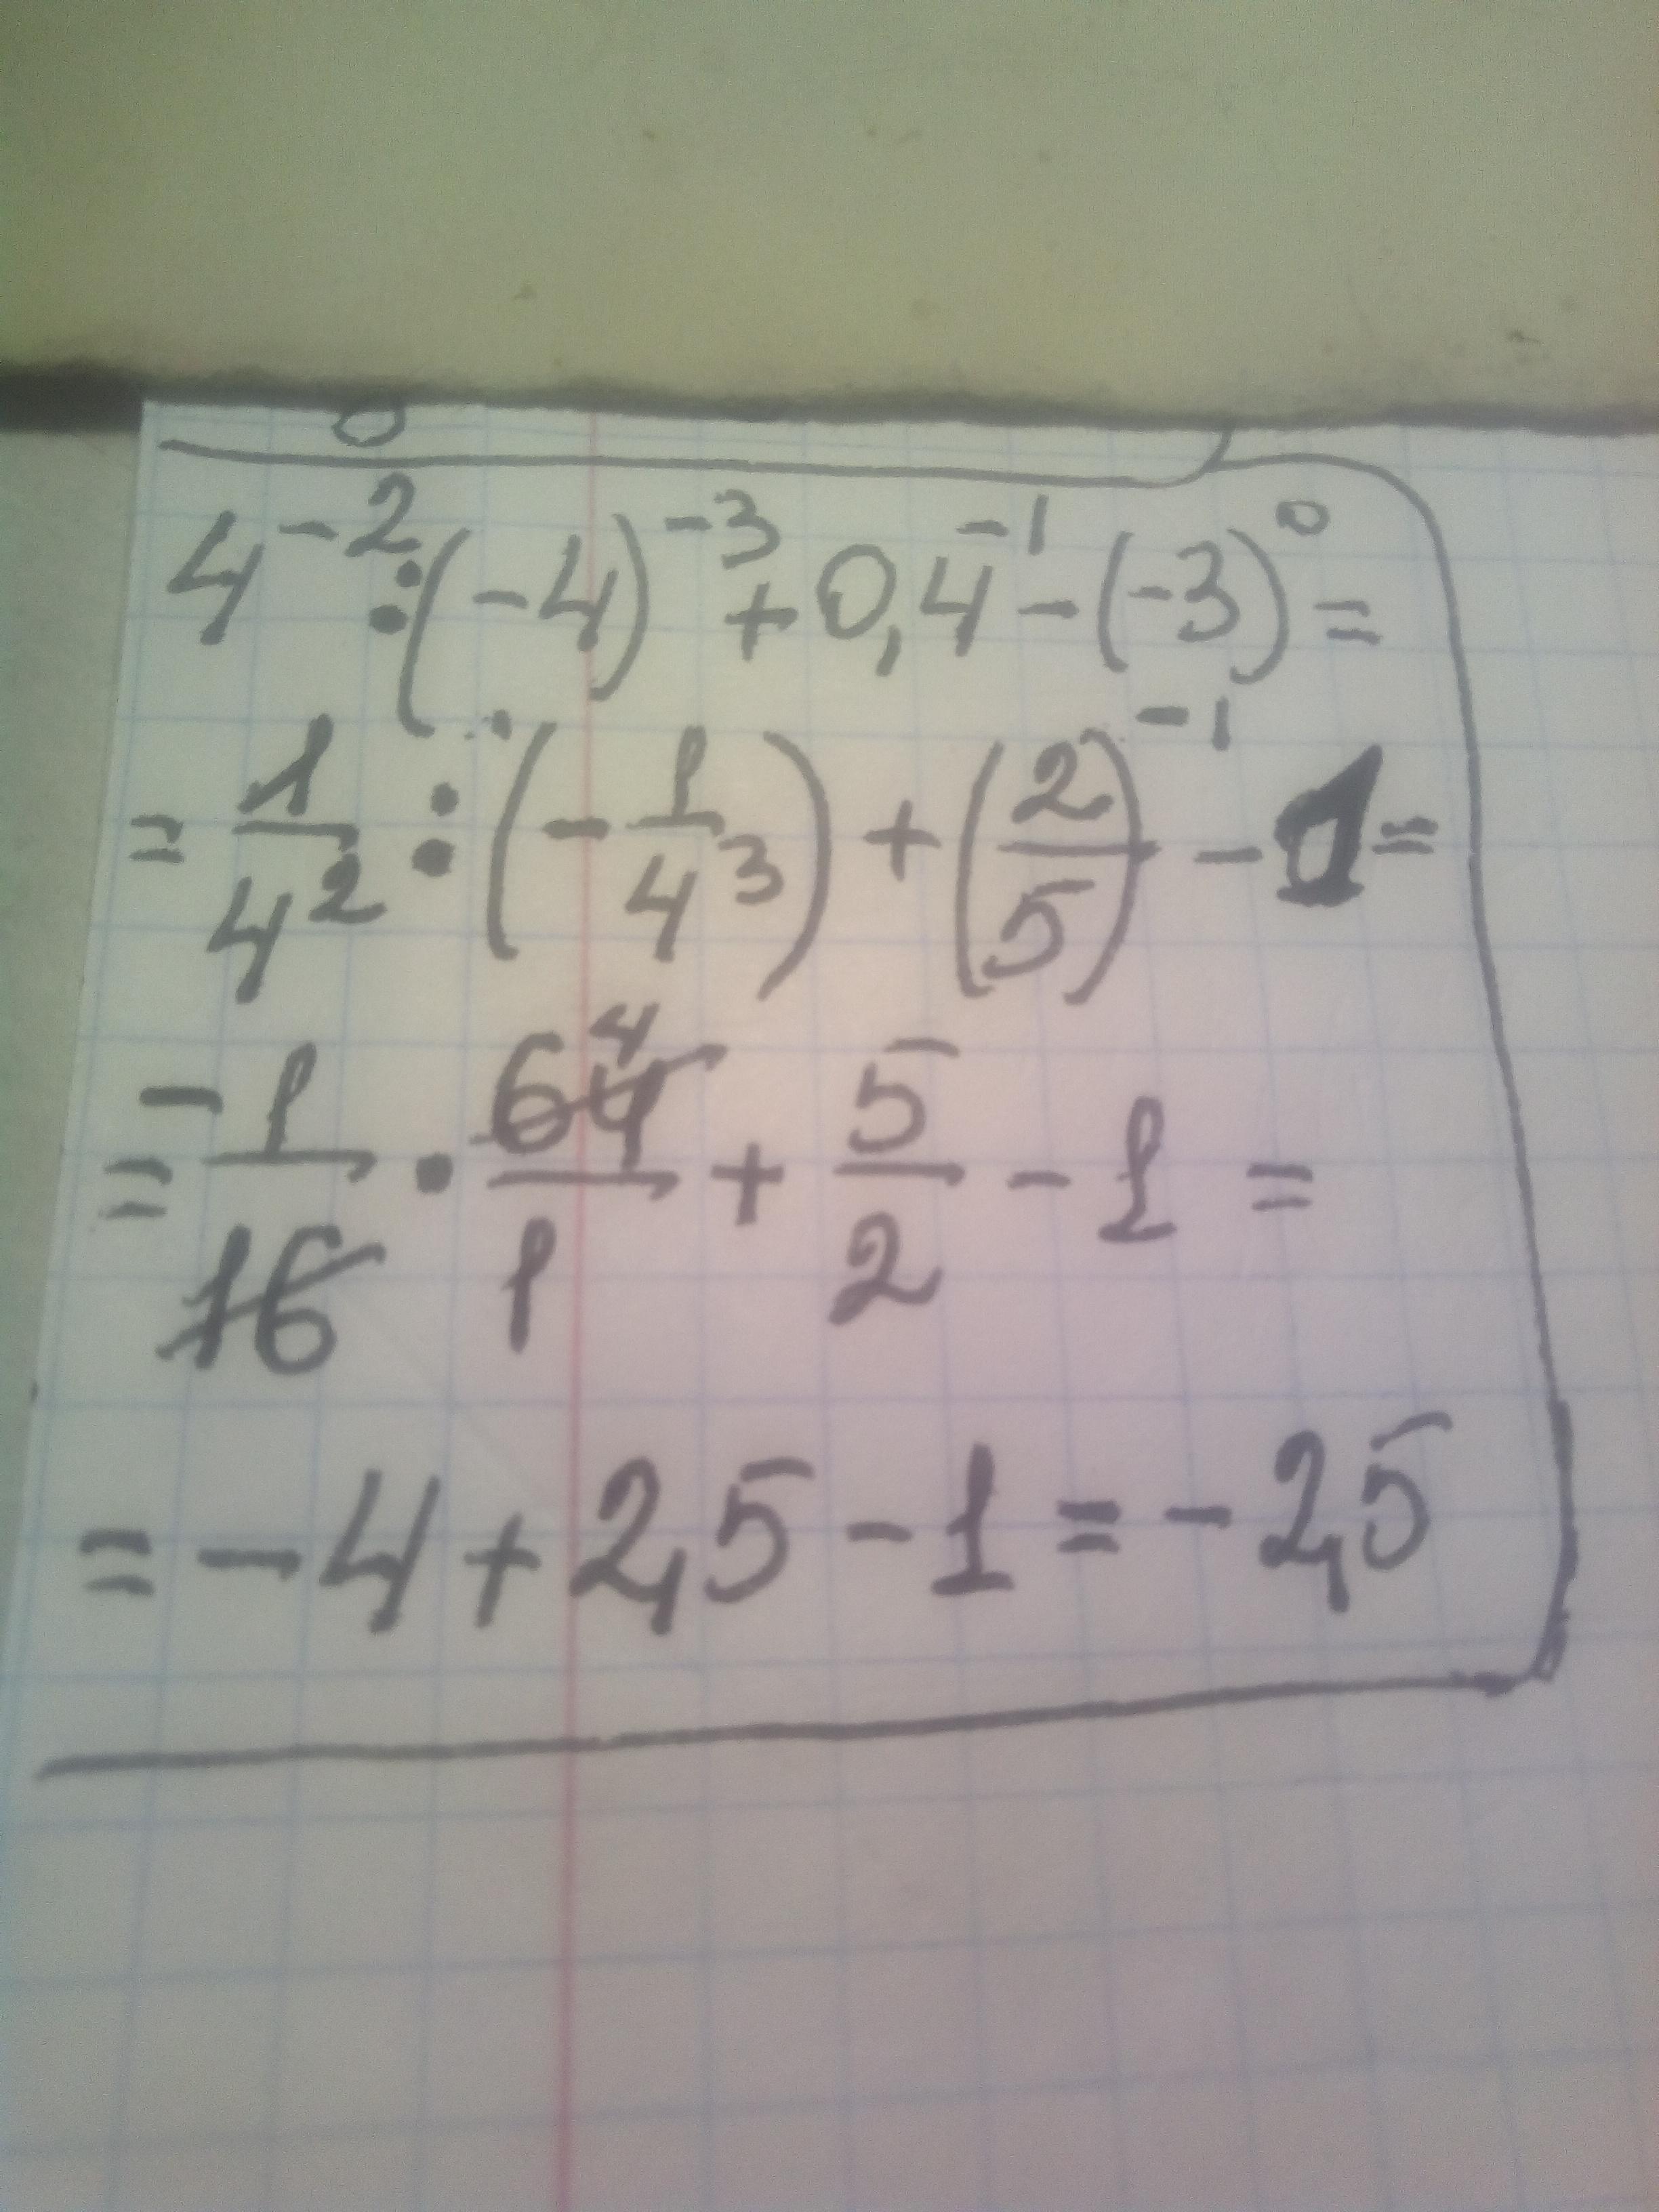 4⁻²:(-4)⁻³+0,4⁻¹-(-3)⁰=
=1/4²:(-1/4³)+(2/5)⁻¹-1=
=-1/16·64/1+5/2-1=
=-4+2,5-1=-2,5